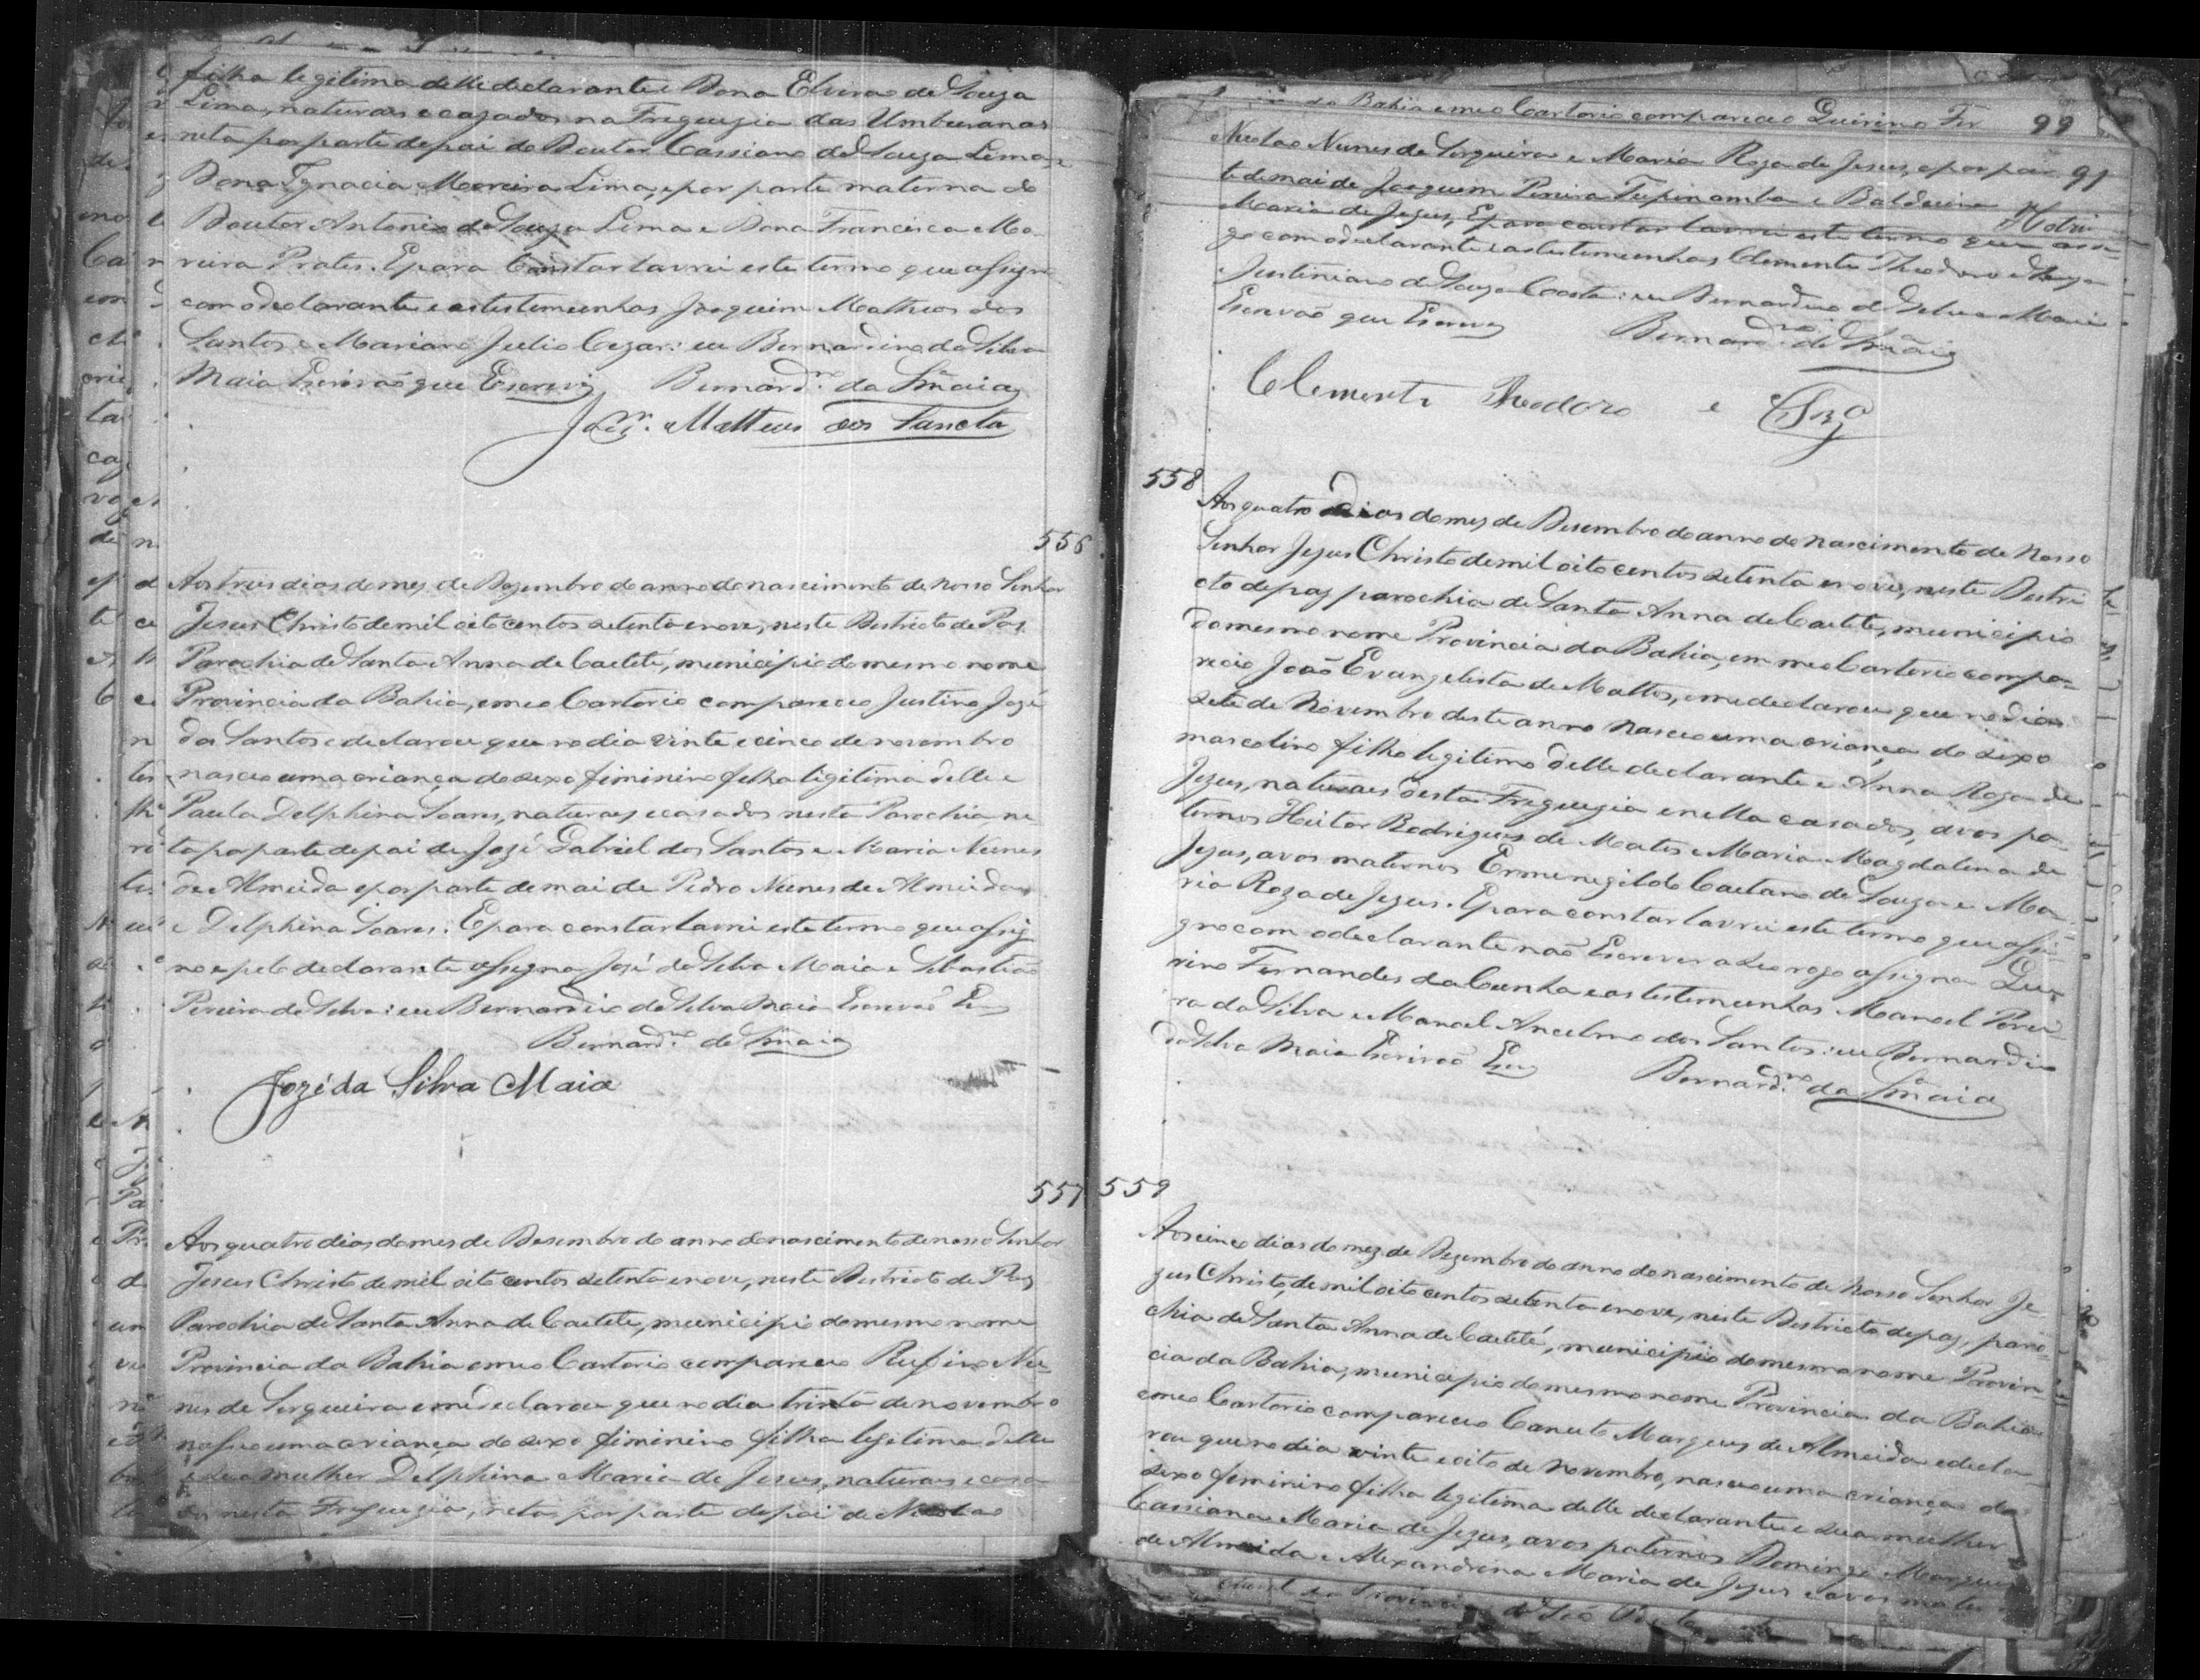 filha legitima delle declarante e Dona Elvira de Souza
Lima, naturaes e cazados na Freguezia das Umburanas
neta por parte de pai do Doutor Cassiano de Souza Lima e
Dona Ignacia Moreira Lima, e por parte materna do
Doutor Antonio de Souza Lima e Dona Francisca Mo-
reira Prates. E para Constar lavrei este termo que assigno
com o declarante e as testemunhas Joaquim Matheos dos
Santos e Mariano Julio Cezar: eu Bernardino da Silva
Maia Escrivão que Escrevi Bernard.no da S.a Maia
Joaq.m Matteus dos Sancto
556
Aos treis dias do mez de Dezembro do anno do nascimento de Nosso Senhor
Jesus Christo de mil oito centos setenta e nove, neste Destricto de Pas
Parochia de Santa Anna de Caeteté, municipio do mesmo nome
Provincia da Bahia, em meo Cartorio compareceo Justino José
dos Santos e declarou que no dia vinte e cinco de novembro
nasceo uma criança do sexo fiminino filha ligitima delle e
Paula Delphina Soares, naturaes e casados nesta Parochia ne
ta por parte de pai de José Gabriel dos Santos e Maria Nunes
de Almeida e por parte de mai de Pedro Nunes de Almeida
e Delphina Soares. E para constar lavrei este termo que assig
no e pelo declarante assigna José da Silva Maia e Sebastião
Pereira da Silva: eu Bernardino da Silva Maia Escrivão Es
Bernard.no da S.a Maia
Jozé da Silva Maia
557
Aos quatro dias do mes de Desembro do anno do nascimento de nosso Senhor
Jesus Christo de mil oito centos setenta e nove, neste Destricto de Paz
Parochia de Santa Anna de Caeteté, municipio do mesmo nome
Provincia da Bahia em meo Cartorio compareceo Rufino Nu-
nes de Serqueira e me declarou que no dia trinta de novembro
nasceo uma criança do sexo fiminino filha legitima delle
e sua mulher Delphina Maria de Jesus, naturaes e casa
dos nesta Freguezia, neta por parte de pai de Nicolao
da Bahia e meo Cartorio compareceo Quirino Fer 99
Nicolao Nunes de Serqueira e Maria Roza de Jesus, e por par 91
te de mai de Joaquim Pereira Tupinamba e Balduina
Maria de Jezus, E para constar lavrei este termo que assi-
go com o declarante e as testemunhas Clemente Theodoro e
Justiniano de Souza Costa: eu Bernardino da Silva Maia
Escrivão que Escrevy Bernard.no da S.a Maia
Clemente Theodoro e
558
Aos quatro dias do mez de Desembro do anno do nascimento de Nosso
Senhor Jezus Christo de mil oito centos setenta e nove, neste Destri
cto de paz parochia de Santa Anna de Caeteté, municipio
do mesmo nome Provincia da Bahia, em meo Cartorio compa-
receo João Evangelista de Mattos, e me declarou que no dia
sete de Novembro deste anno nasceo uma criança do sexo
mascolino filho legitimo delle declarante e Anna Roza de
Jezus, naturaes desta Freguezia e nella casados, avos pa-
ternos Heitor Rodrigues de Matos e Maria Magdalena de
Jezus, avos maternos Ermenegildo Caetano de Souza e Ma-
ria Roza de Jezus. E para constar lavrei este termo que assi-
gno com o declarante não Escrever a seo rogo assigna Qui-
rino Fernandes da Cunha e as testemunhas Manoel Perei-
ra da Silva e Manoel Ancelmo dos Santos: eu Bernardino
da Silva Maia Escrivão Escrevy
Bernard.no da S.a Maia
559
Aos cinco dias do mez de Dezembro do anno do nascimento de Nosso Senhor Je
zus Christo, de mil oito centos setenta e nove, neste Destricto de paz, paro-
chia de Santa Anna de Caeteté, municipio do mesmo nome Provin
cia da Bahia, municipio do mesmo nome Provincia da Bahia
em meo Cartorio compareceo Canuto Marques de Almeida e decla
rou que no dia vinte e oito de Novembro, nasceo uma criança do
sexo feminino filha legitima delle declarante e sua mulher
Cassiana Maria de Jezus, avos paternos Domingos Marques
de Almeida e Alexandrina Maria de Jezus e avos mater